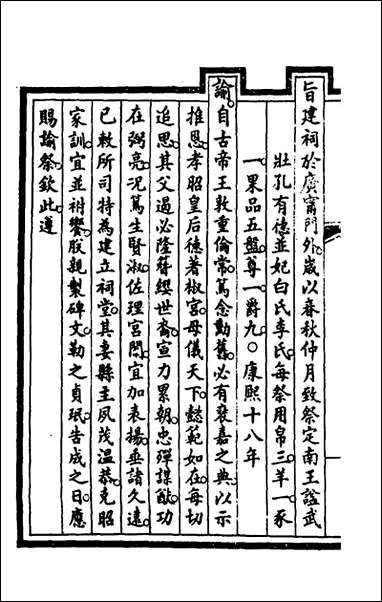 旨建祠於廣甯門外歲以春秋仲月致祭定南王諡武
壯孔有德並妃白氏李氏每祭用帛三羊一豕
一果品五盤尊一爵九○康熙十八年
諭自古帝王敦重倫常篤念勳舊必有褒嘉之典以示
推恩孝昭皇后德著椒宮母儀天下懿範如在每切
追思其父遏必隆簪纓世裔宣力累朝忠殫謀猷功
在弼亮況篤生賢淑佐理宮闈宜加表揚垂諸久遠
已敕所司特為建立祠堂其妻縣主夙茂溫恭克昭
家訓宜並祔饗朕親製碑文勒之貞珉告成之日應
賜諭祭欽此遵